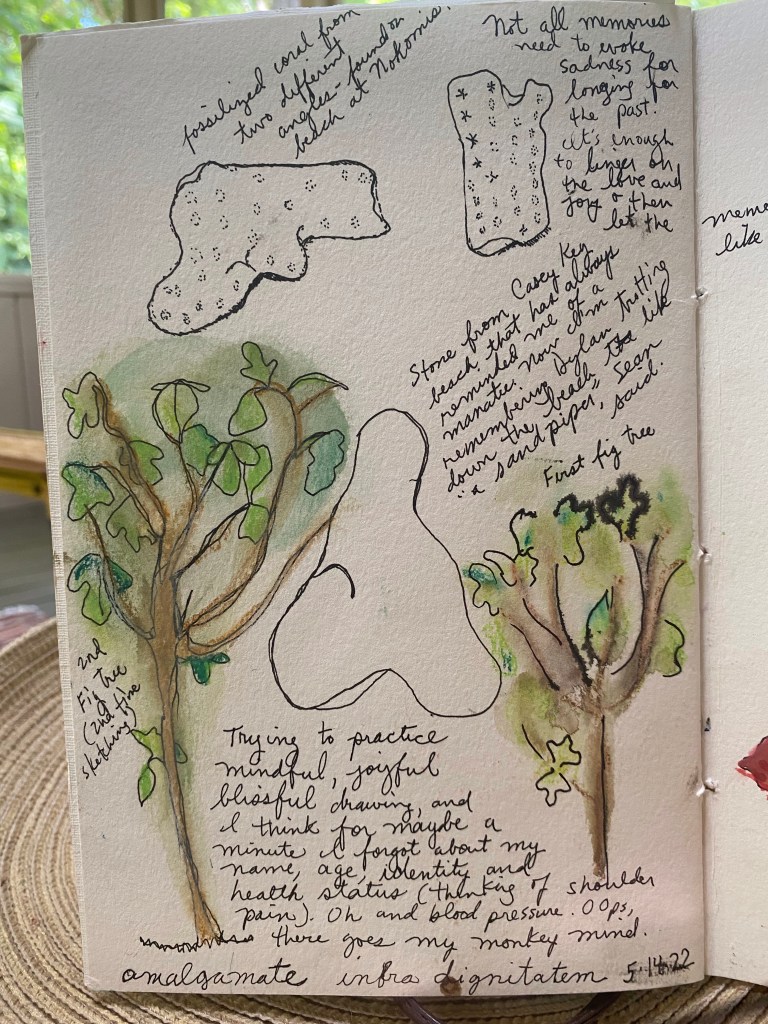 fossilized coral from
two different
angles - found on
beach at Nokomis.
Not all memories
need to evoke
sadness for
longing for
the past.
it's enough
to linger on
the love and
joy & then
let the
meme
like
Stone from Casey Key
beach, that has always
reminded me of a
manatee. Now I'm
remembering Dylan trotting
down the beach like
"a sand piper," Sean
said.
First fig tree
2nd
Fig tree
(2nd time
sketching)
Trying to practice
mindful, joyful
blissful drawing, and
I think for maybe a
minute I forgot about my
name, age, identity and
health status (thinking of shoulder
pain). Oh and blood pressure. OOps,
there goes my monkey mind.
amalgamate infra dignitatem 5.14.22